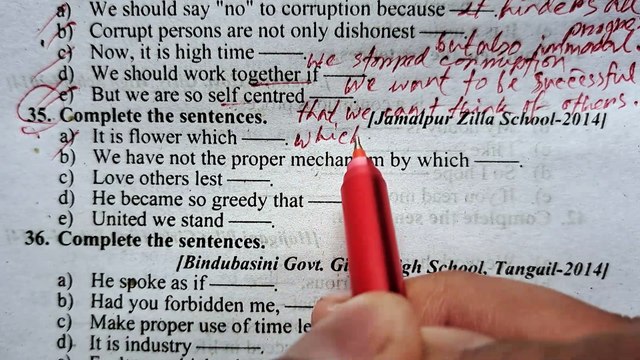 a) We should say "no" to corruption because — it hinders all progre.
b) Corrupt persons are not only dishonest — but also immodal.
c) Now, it is high time — we stopped corruption.
d) We should work together if — we want to be successful
e) But we are so self centred — that we can't think of others.
35. Complete the sentences. [Jamalpur Zilla School-2014]
a) It is flower which —. which
b) We have not the proper mechanism by which —.
c) Love others lest —.
d) He became so greedy that —
e) United we stand —.
36. Complete the sentences.
[Bindubasini Govt. Gi High School, Tangail-2014]
a) He spoke as if —.
b) Had you forbidden me, —
c) Make proper use of time le
d) It is industry —